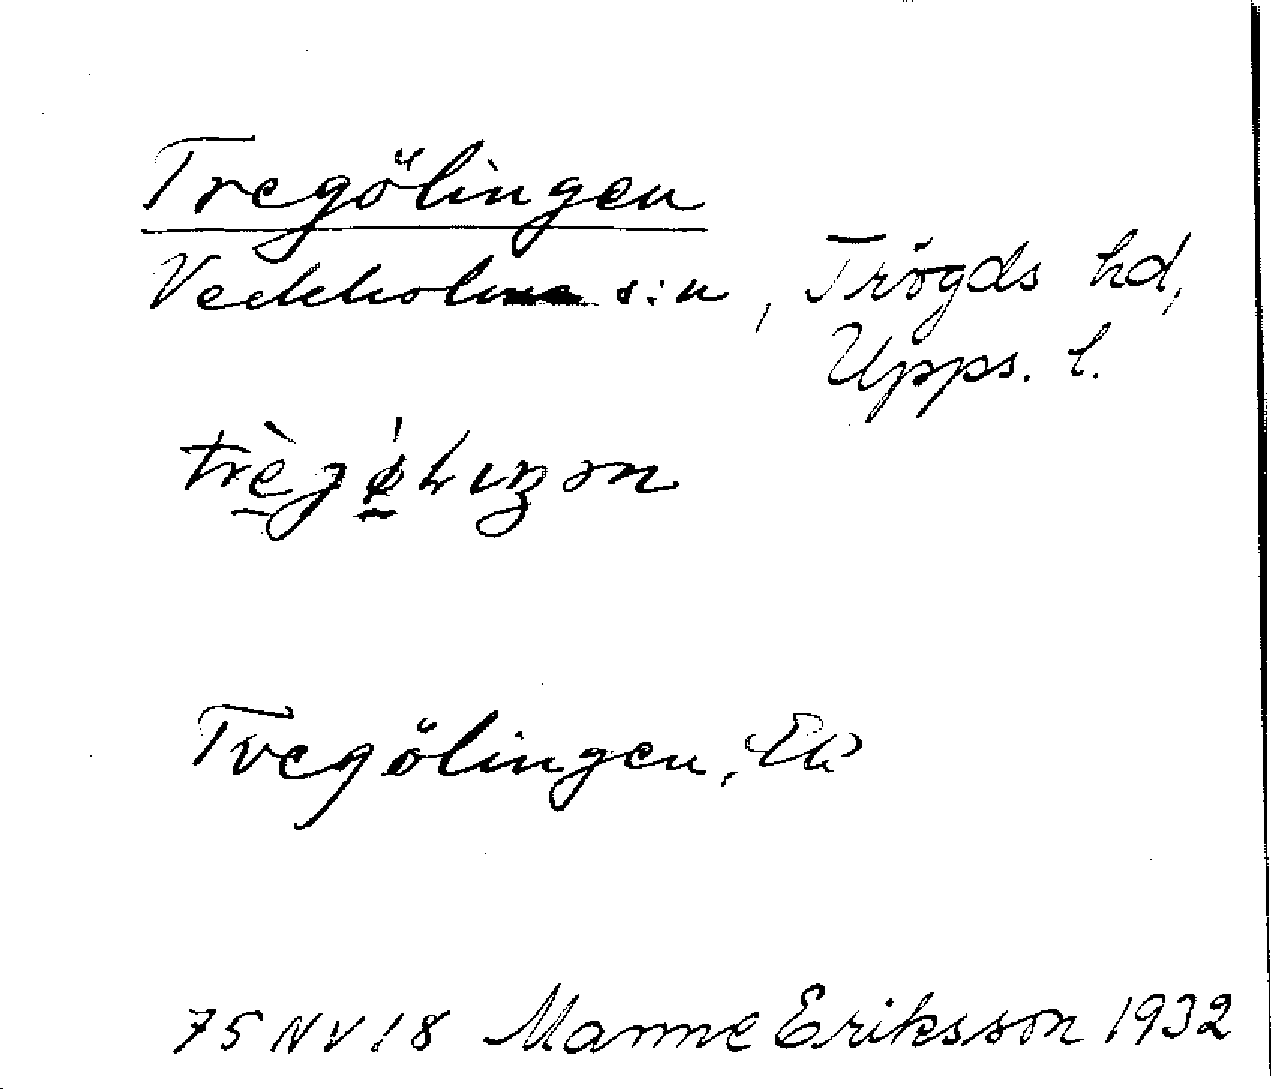 Tregölingen
Veckholm s:n, Trögds hd,
Upps. l.
Tregölingen, Ek
75 NV 18 Manne Eriksson 1932